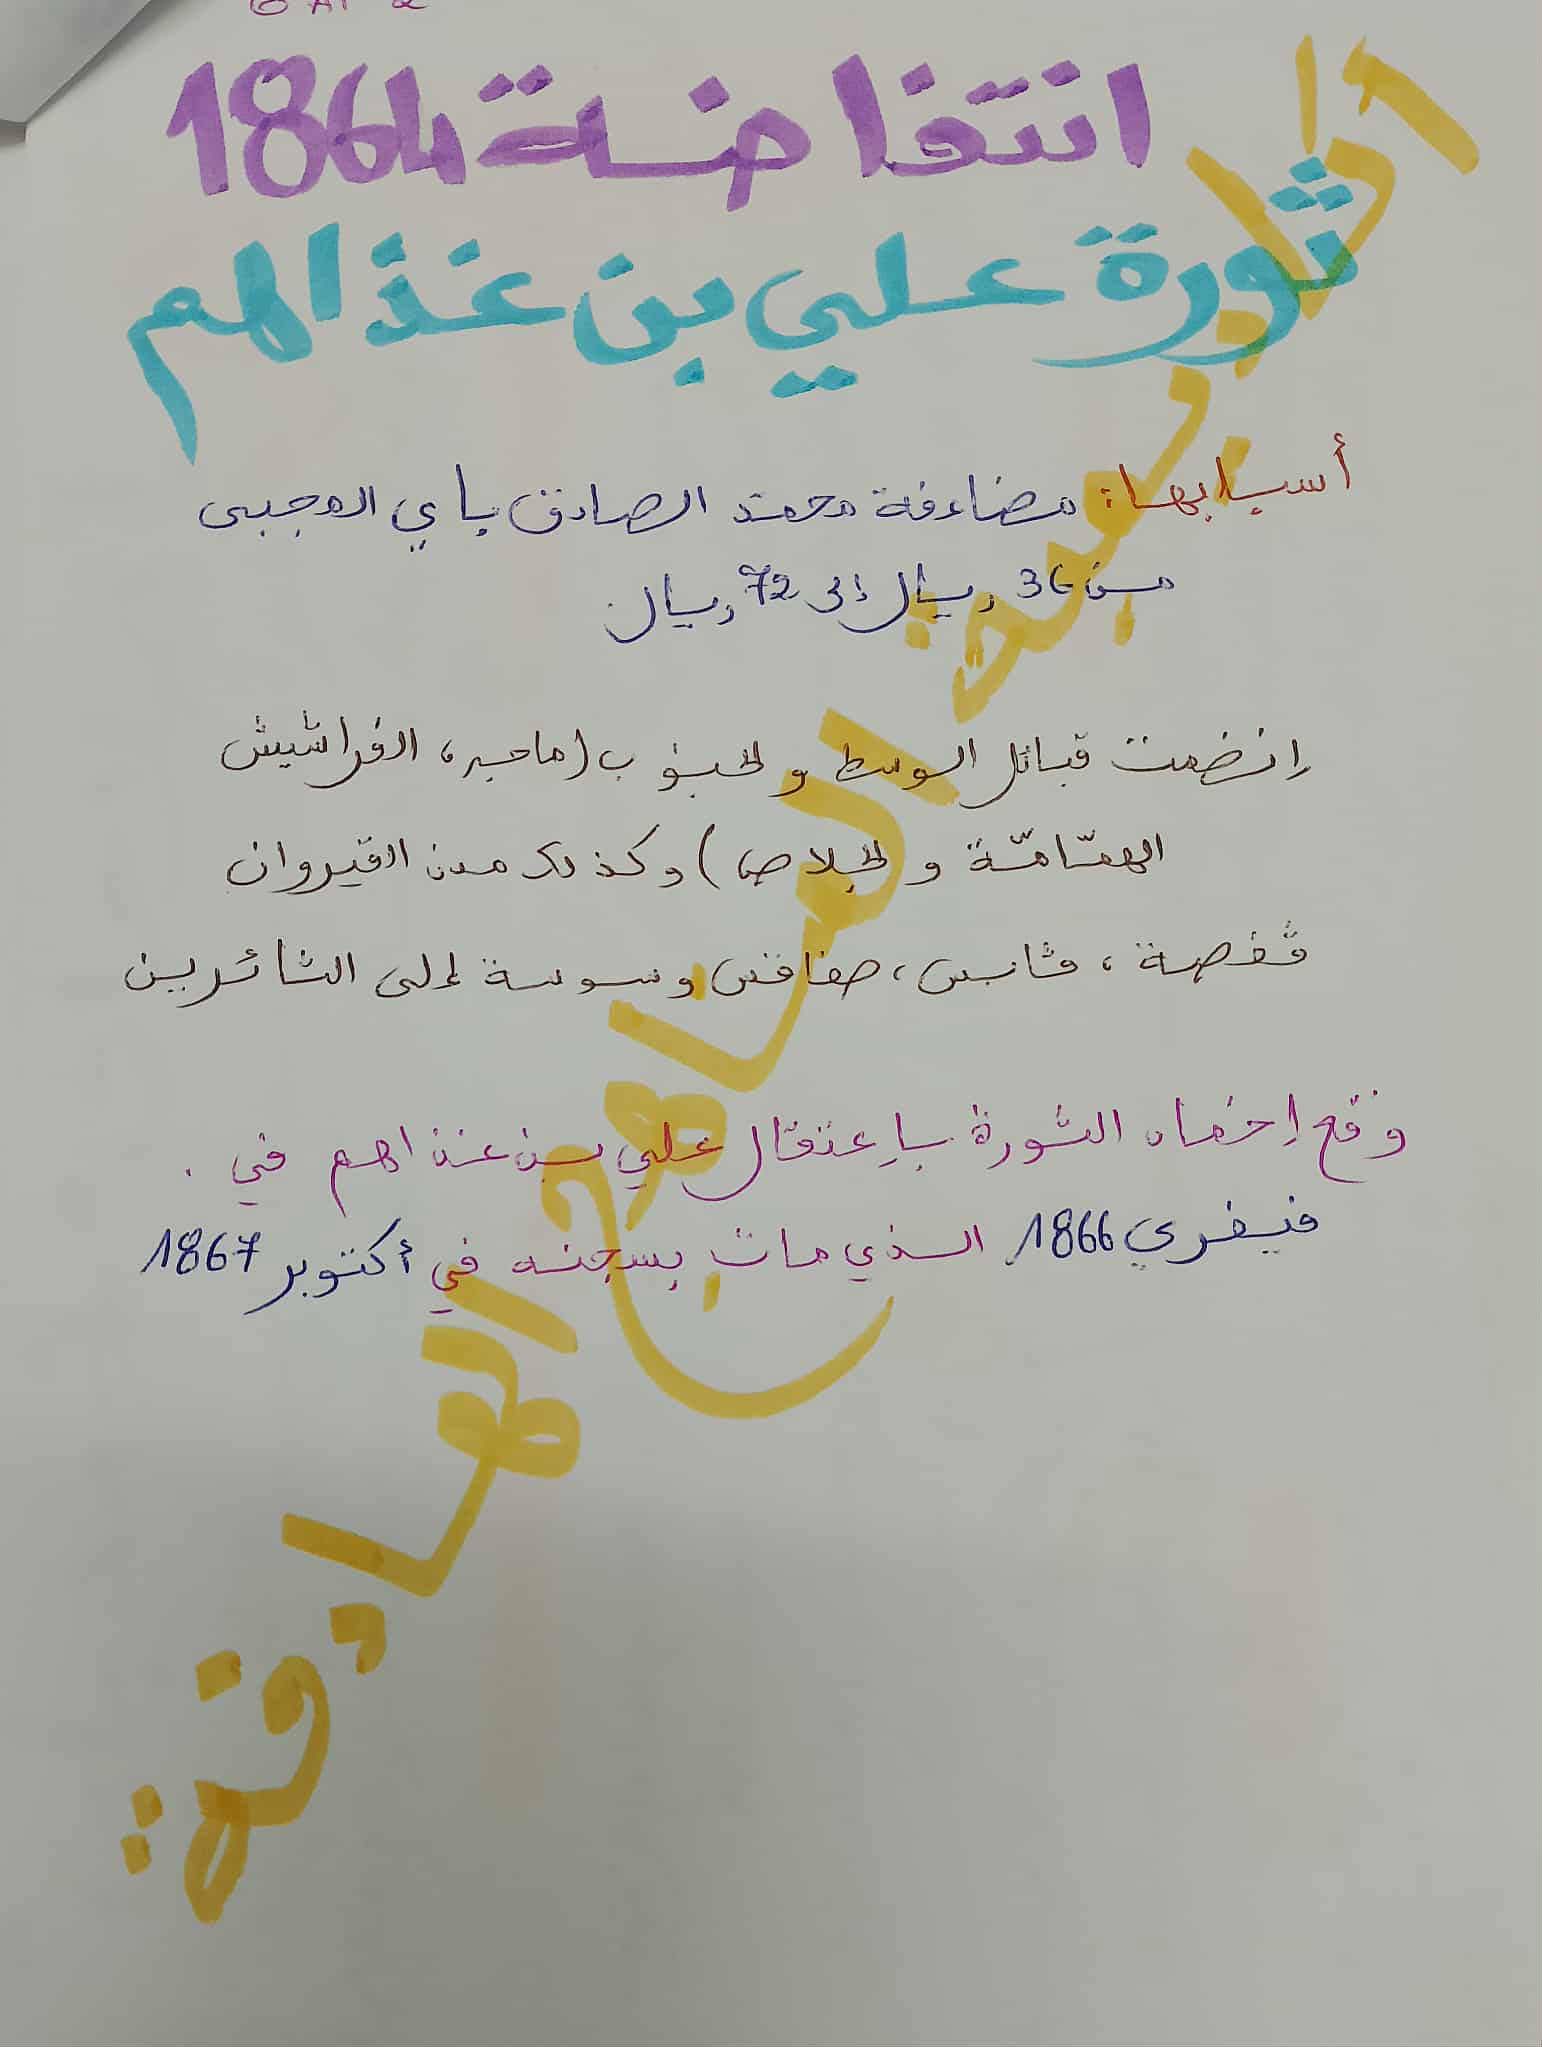 انتفاضة 1864
ثورة علي بن غذاهم
أسبابها: مضاعفة محمد الصادق باي المجبى
من 36 ريال إلى 72 ريال
إنضمت قبائل الوسط والجنوب (ماجر، الفراشيش
الهمّامّة والجلاص) وكذلك مدن القيروان
ڨفصة، ڨابس، صفاقس وسوسة إلى الثائرين
وقع إخماد الثورة بإعتقال علي بن غذاهم في.
فيفري 1866 الذي مات بسجنه في أكتوبر 1867
المناهج الهادفة